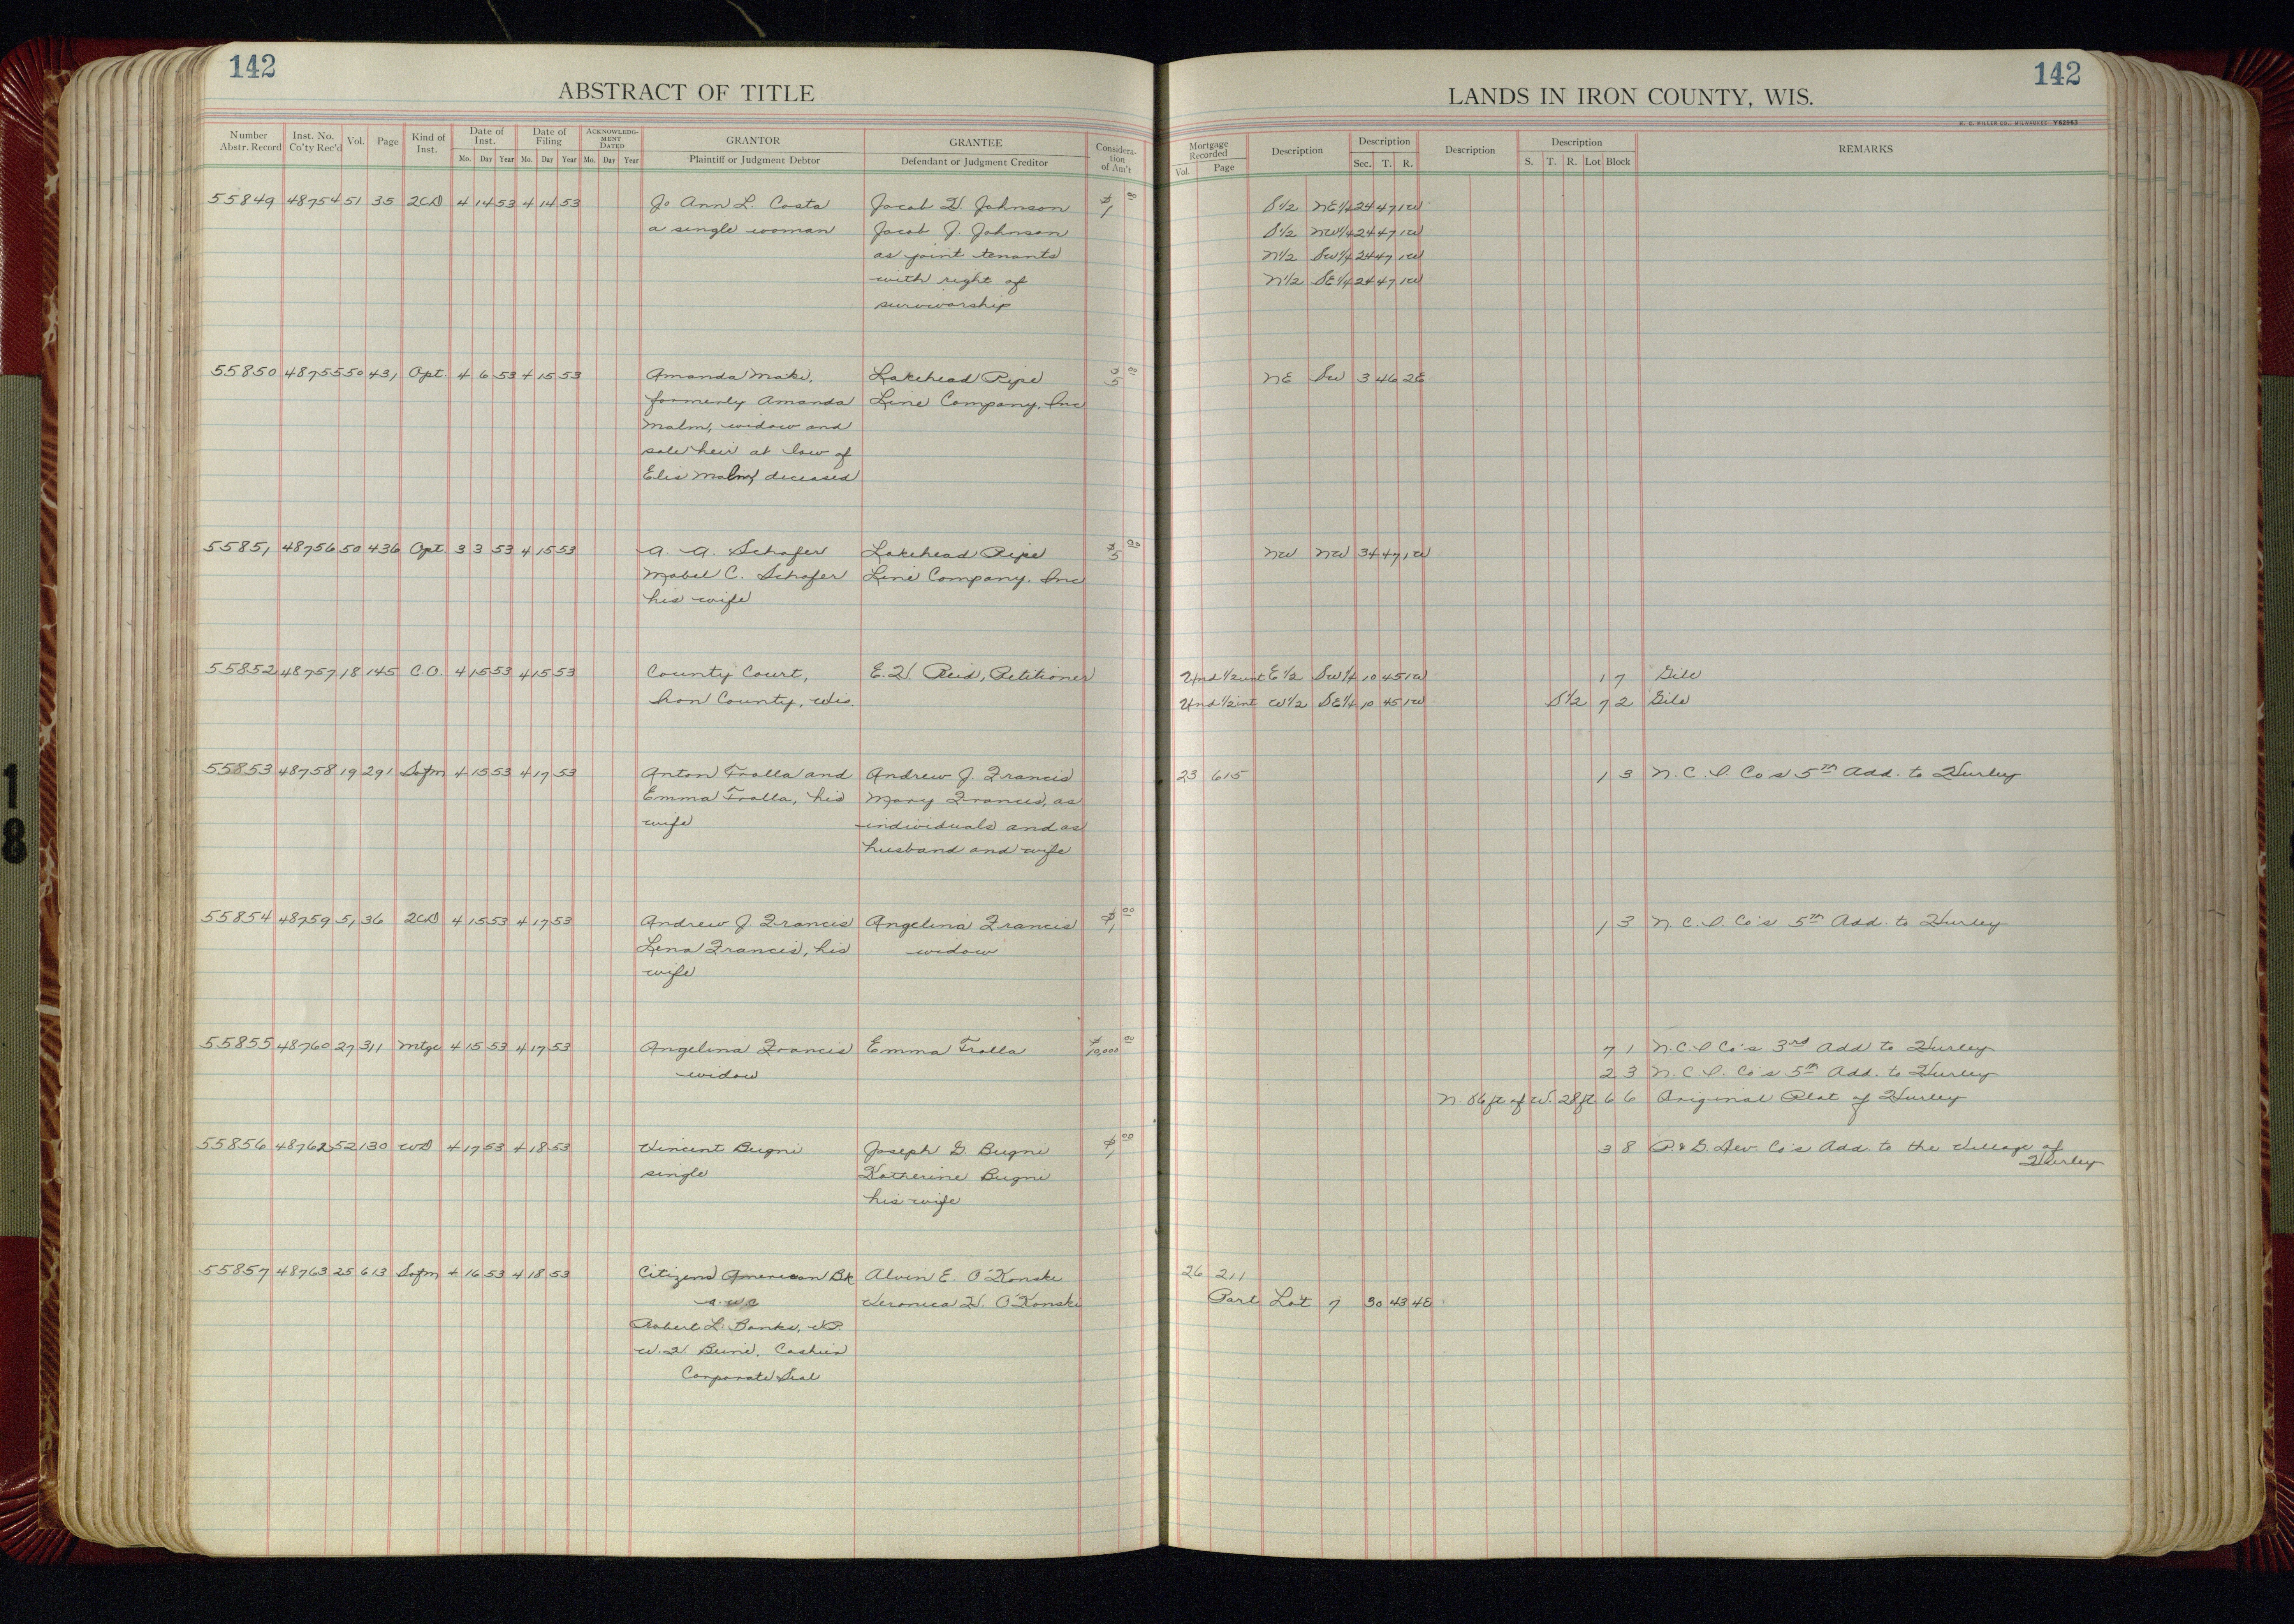 142
142
ABSTRACT OF TITLE
LANDS IN IRON COUNTY, WIS.
H. C. MILLER CO., MILWAUKEE Y62963
Number Abstr. Record | Inst. No. Co'ty Rec'd | Vol. | Page | Kind of Inst. | Date of Inst. Mo. Day Year | Date of Filing Mo. Day Year | ACKNOWLEDGMENT DATED Mo. Day Year | GRANTOR Plaintiff or Judgment Debtor | GRANTEE Defendant or Judgment Creditor | Consideration of Am't | Mortgage Recorded Vol. Page | Description | Description Sec. T. R. | Description | Description S. T. R. Lot Block | REMARKS
55849 48754 51 35 2CD 4 14 53 4 14 53 Jo Ann L. Costa Jacob H. Johnson $1 00 S 1/2 NE 1/4 24 47 1W
a single woman Jacob J. Johnson S 1/2 NW 1/4 24 47 1W
as joint tenants N 1/2 SW 1/4 24 47 1W
with right of N 1/2 SE 1/4 24 47 1W
survivorship
55850 48755 50 431 Opt. 4 6 53 4 15 53 Amanda Maki, Lakehead Pipe $5 00 NE SW 3 46 2E
formerly Amanda Line Company, Inc
Malm, widow and
sole heir at law of
Elis Malm, deceased
55851 48756 50 436 Opt. 3 3 53 4 15 53 A. A. Schafer Lakehead Pipe $5 00 NW NW 34 47 1W
Mabel C. Schafer Line Company, Inc
his wife
55852 48757 18 145 C.O. 4 15 53 4 15 53 County Court, E. H. Reid, Petitioner Und 1/2 int E 1/2 SW 1/4 10 45 1W 1 7 Gile
Iron County, Wis. Und 1/2 int W 1/2 SE 1/4 10 45 1W S 1/2 7 2 Gile
55853 48758 19 291 Sofm 4 15 53 4 17 53 Anton Trolla and Andrew J. Francis 23 615 1 3 N. C. I. Co's 5th Add. to Hurley
Emma Trolla, his Mary Francis, as
wife individuals and as
husband and wife
55854 48759 51 36 2CD 4 15 53 4 17 53 Andrew J. Francis Angelina Francis $1 00 1 3 N. C. I. Co's 5th Add. to Hurley
Lena Francis, his widow
wife
55855 48760 27 311 Mtge 4 15 53 4 17 53 Angelina Francis Emma Trolla $10,000 00 7 1 N. C. I Co's 3rd Add to Hurley
widow 2 3 N. C. I. Co's 5th Add. to Hurley
N. 86 ft of W. 28 ft 6 6 Original Plat of Hurley
55856 48762 52 130 WD 4 17 53 4 18 53 Vincent Bugni Joseph G. Bugni $1 00 3 8 P. & G. Dev. Co's Add. to the Village of
Hurley
single Katherine Bugni
his wife
55857 48763 25 613 Sofm 4 16 53 4 18 53 Citizens American Bk Alvin E. O'Konski 26 211
Veronica H. O'Konski Part Lot 7 30 43 4E
Robert L. Banks, VP.
Cashier
Corporate Seal
18